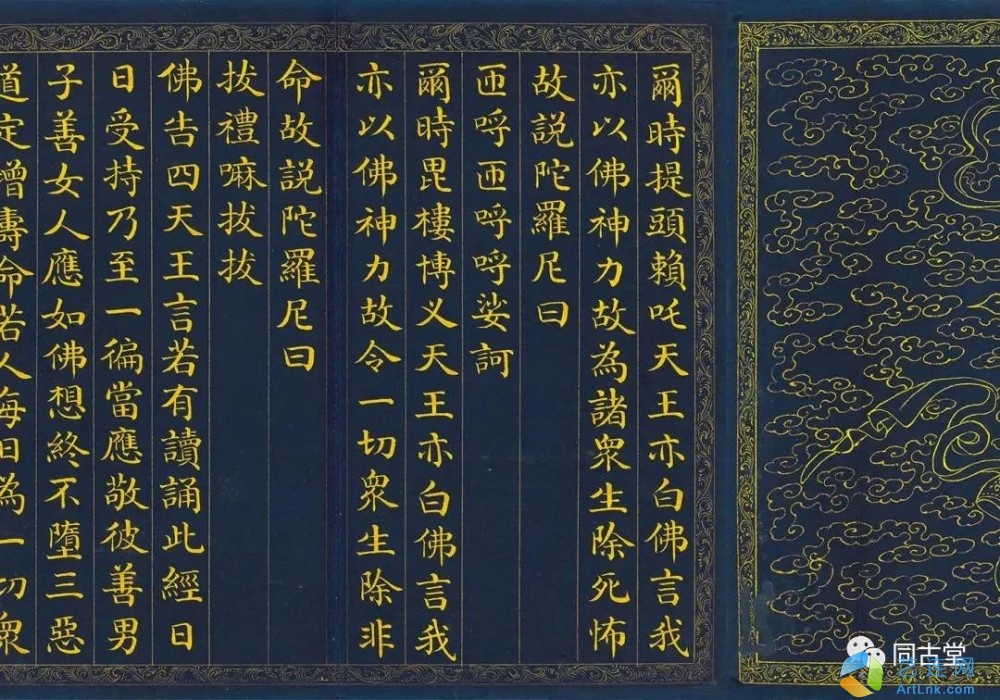 爾時提頭賴吒天王亦白佛言我
亦以佛神力故為諸衆生除死怖
故説陀羅尼曰
匝呼匝呼呼娑訶
爾時毘樓博义天王亦白佛言我
亦以佛神力故令一切衆生除非
命故説陀羅尼曰
拔禮嘛拔拔
佛告四天王言若有讀誦此經日
日受持乃至一徧當應敬彼善男
子善女人應如佛想終不墮三惡
道定增壽命若人每日為一切衆
同古堂
ArtLnk.com